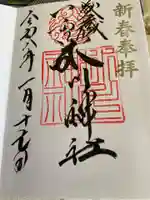 新春奉拝
武蔵一宮
氷川神社
令和六年一月十七日